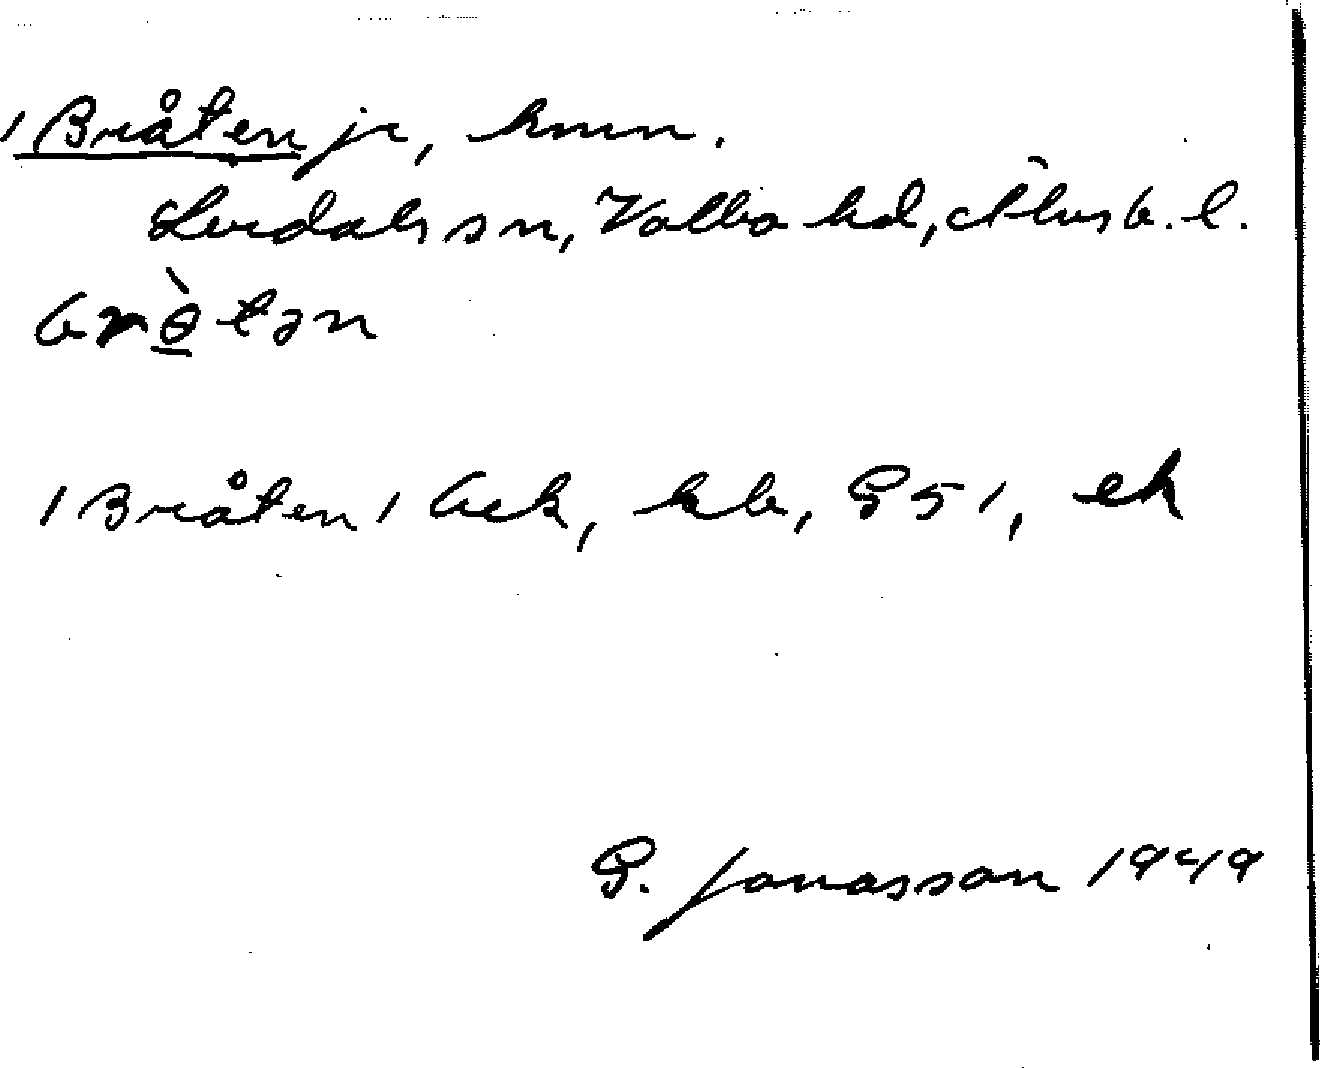 /Bråten jr, hmn.
Lerdals sn, Valbo hd, Älvsb. l.
bròtən
/Bråten/ Ack, kb, G51, ek
G. Jonasson 1949